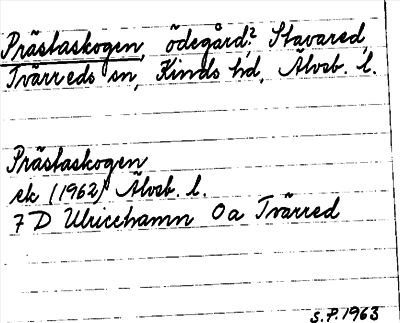 Prästaskogen, ödegård? Stavared,
Tvärreds sn, Kinds hd, Älvsb. l.
Prästaskogen
ek (1962) Älvsb. l.
7 D Ulricehamn 0a Tvärred
S.P. 1963